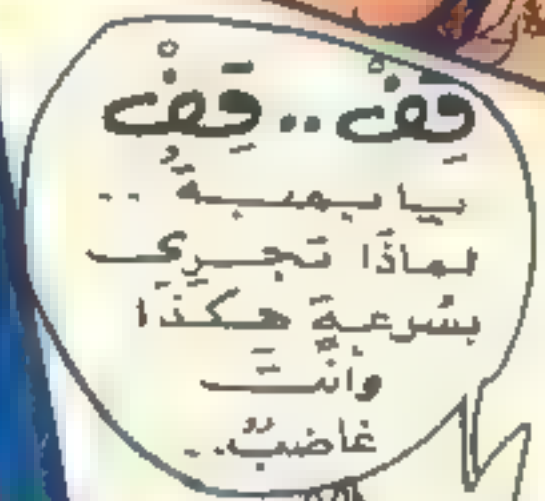 قِفْ .. قِفْ
يا بهبهُ ..
لماذَا تَجرِي
بسُرعةٍ هكَذَا
وانْتَ
غاضبٌ ..